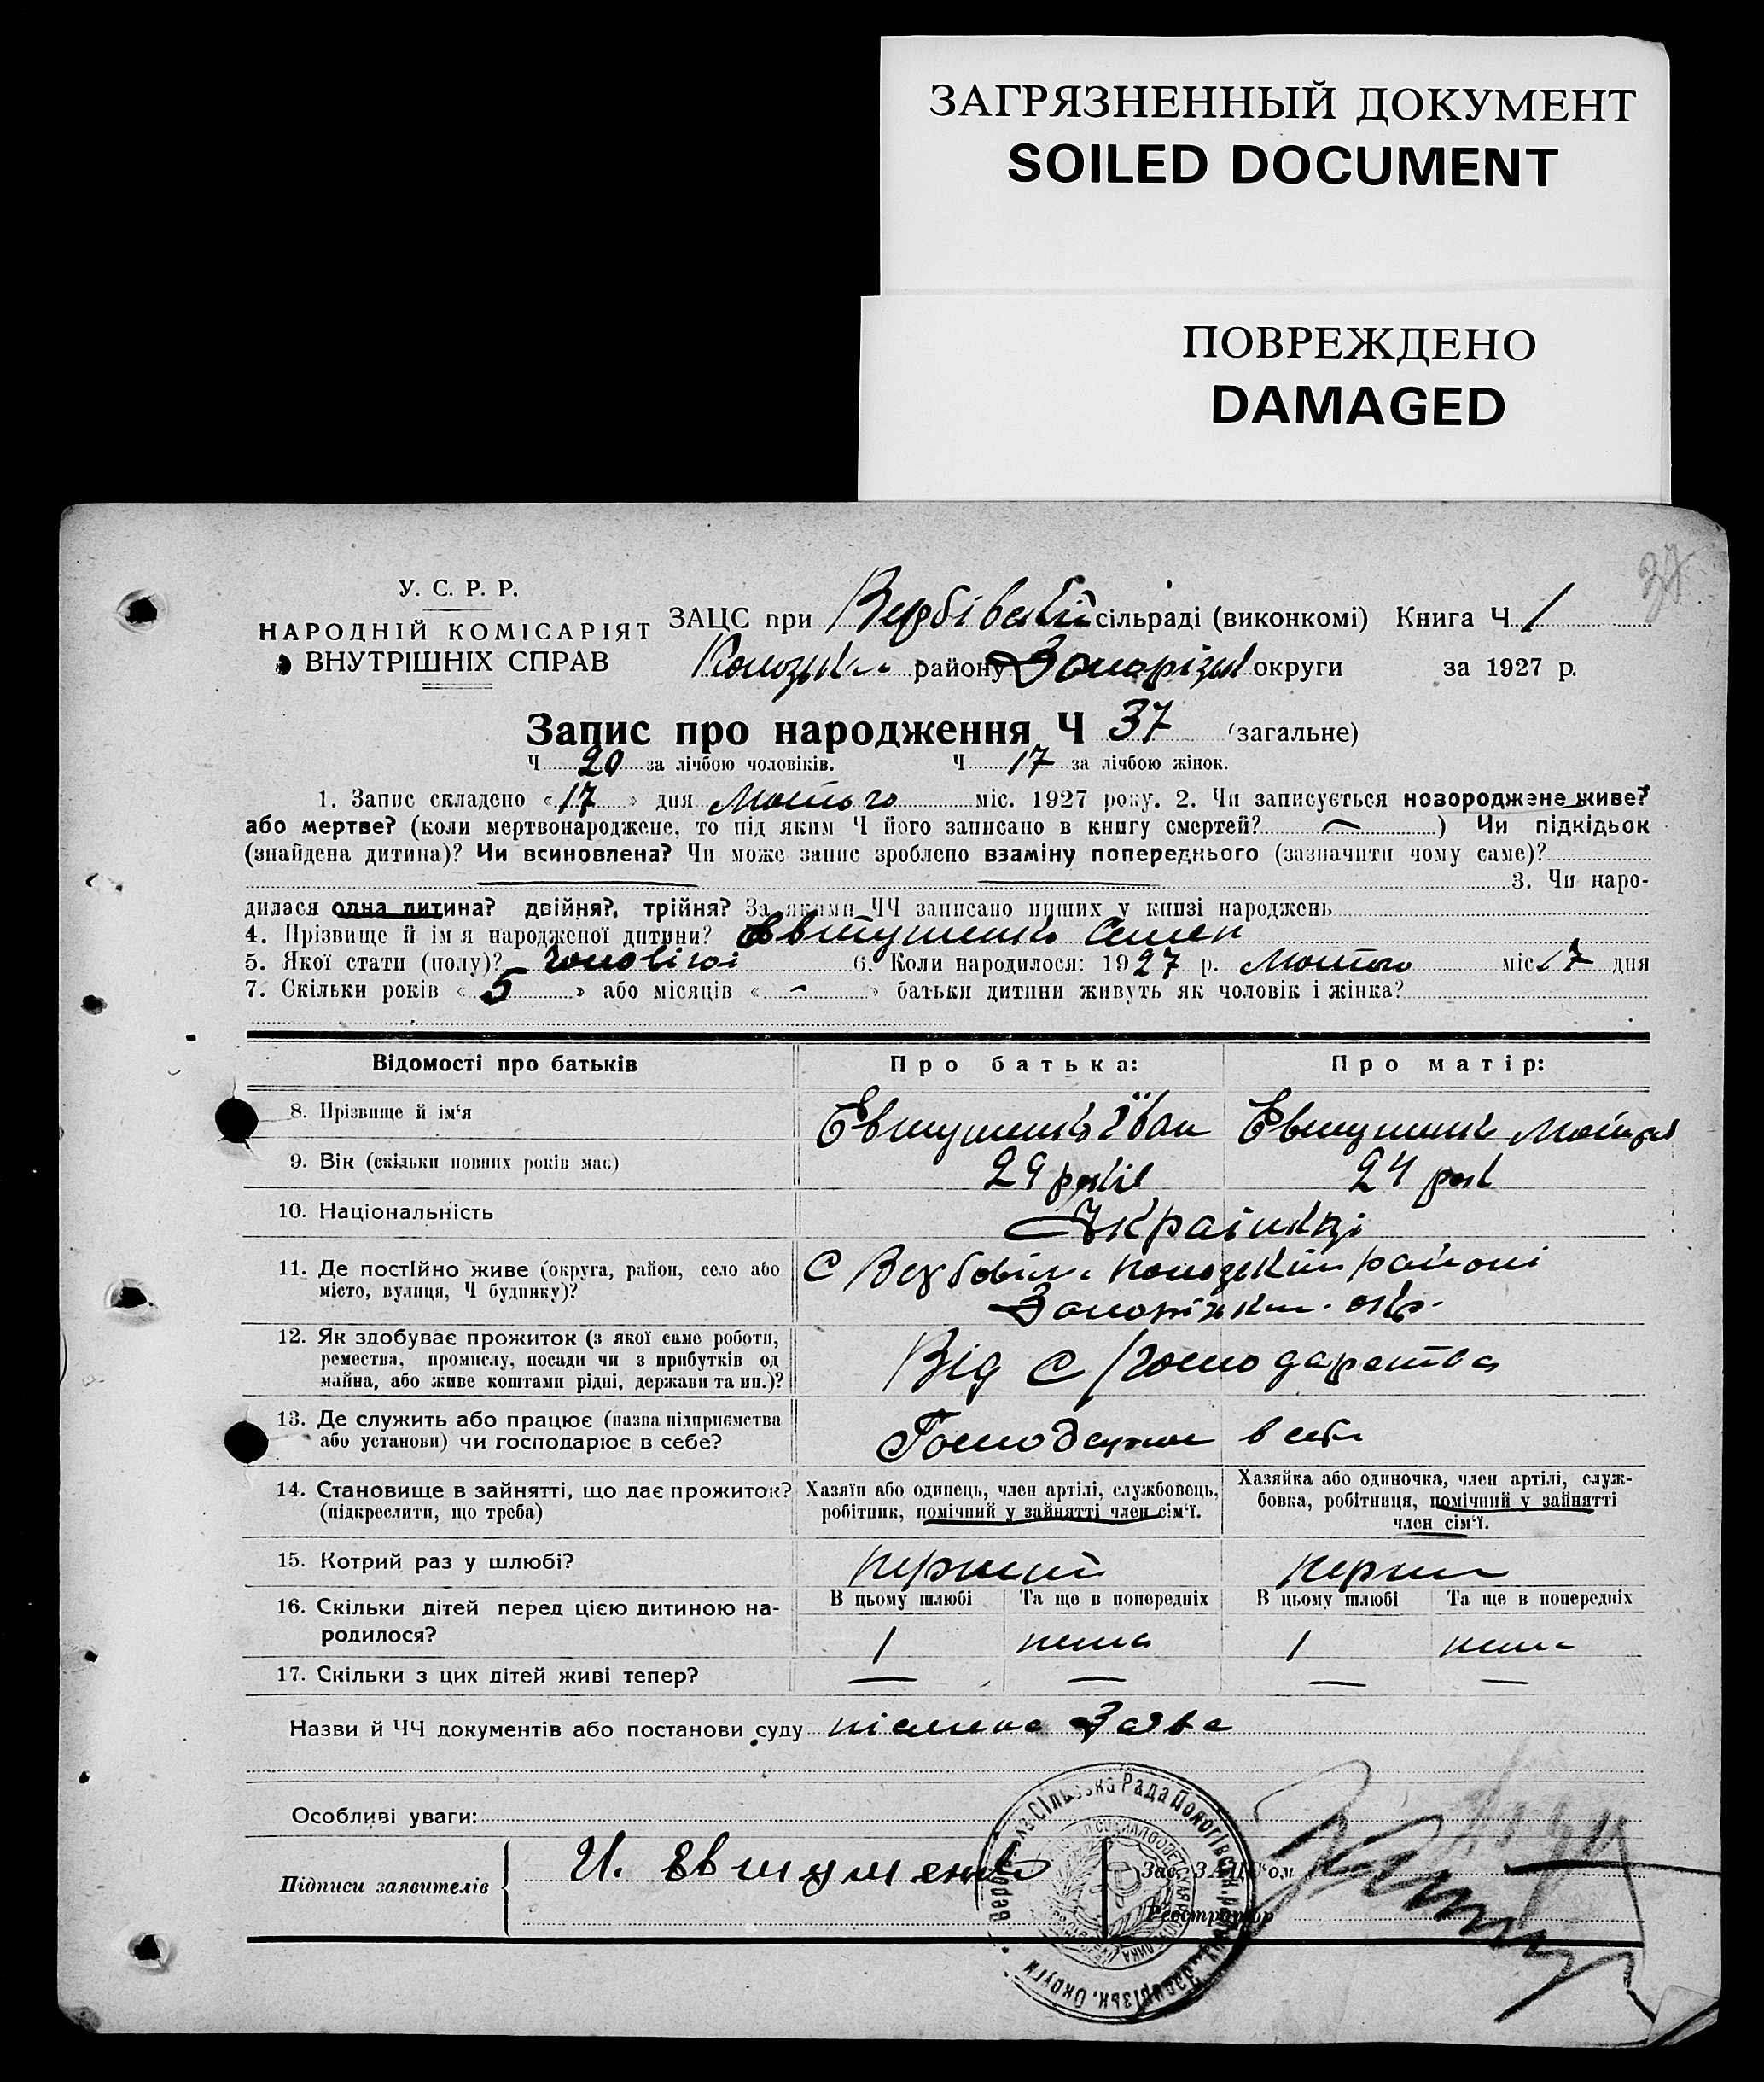 ЗАГРЯЗНЕННЫЙ ДОКУМЕНТ
SOILED DOCUMENT
ПОВРЕЖДЕНО
DAMAGED
37
У. С. Р. Р.
НАРОДНІЙ КОМІСАРІЯТ
ВНУТРІШНІХ СПРАВ
ЗАЦС при Вербівській сільраді (виконкомі) Книга Ч 1
району Запорізьк округи за 1927 р.
Запис про народження Ч 37 (загальне)
Ч 20 за лічбою чоловіків. Ч 17 за лічбою жінок.
1. Запис складено «17» дня Лютого міс. 1927 року. 2. Чи записується новороджене живе?
або мертве? (коли мертвонароджене, то під яким Ч його записано в книгу смертей? —) Чи підкідьок
(знайдена дитина)? Чи всиновлена? Чи може запис зроблено взаміну попереднього (зазначити чому саме)?
3. Чи наро-
дилася одна дитина? двійня?, трійня? За якими ЧЧ записано инших у книзі народжень
4. Прізвище й ім я народженої дитини? Євтушенко Семен
5. Якої стати (полу)? чоловічої 6. Коли народилося: 1927 р. Лютого міс 17 дня
7. Скільки років «5» або місяців «-» батьки дитини живуть як чоловік і жінка?
Відомості про батьків Про батька: Про матір:
8. Прізвище й ім'я Євтушенко Іван Євтушенко
9. Вік (скільки повних років має) 29 років 24 рок
10. Національність Українці
11. Де постійно живе (округа, район, село або
місто, вулиця, Ч будинку)?
С районі
Запоріжк. окр.
12. Як здобуває прожиток (з якої саме роботи,
ремества, промислу, посади чи з прибутків од
майна, або живе коштами рідні, держави та ин.)?
Від С/господарства
13. Де служить або працює (назва підприємства
або установи) чи господарює в себе?
Господарює в себе
14. Становище в зайнятті, що дає прожиток?
(підкреслити, що треба)
Хазяїн або одинець, член артілі, службовець,
робітник, помічний у зайнятті член сім'ї.
Хазяйка або одиночка, член артілі, служ-
бовка, робітниця, помічний у зайнятті
член сім'ї.
15. Котрий раз у шлюбі? перший перший
16. Скільки дітей перед цією дитиною на-
родилося?
В цьому шлюбі Та ще в попередніх В цьому шлюбі Та ще в попередніх
1 нема 1 нема
17. Скільки з цих дітей живі тепер? — — — —
Назви й ЧЧ документів або постанови суду письмена Заява
Особливі уваги:
Підписи заявителів И. Евтушенко
Зав. ЗАЦС'ом
Реєстратор
Сільська Рада Пологівськ. району Запорізьк. Округи